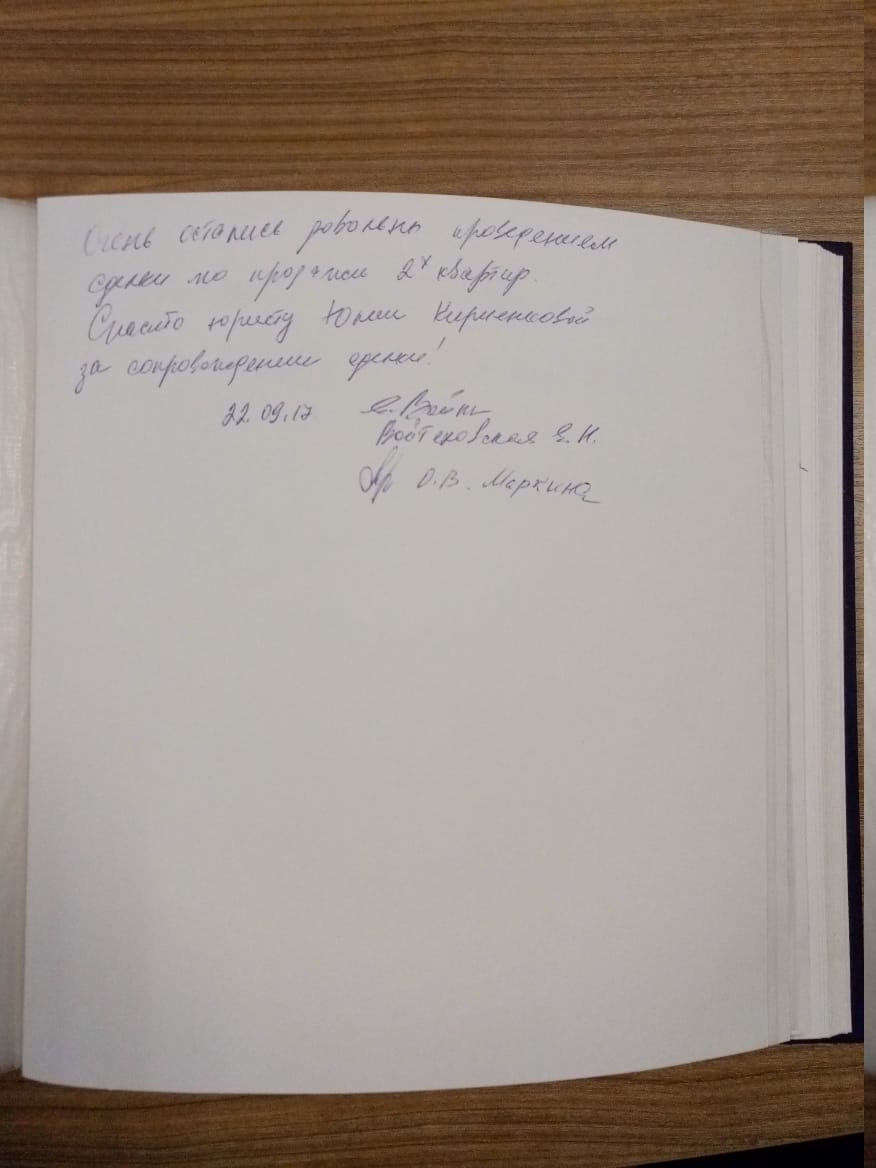 Очень остались довольны проведением
сделки по продажи 2х квартир.
Спасибо юристу Юлии
за сопровождение сделки!
22.09.17
Е.Н.
О.В. Маркина